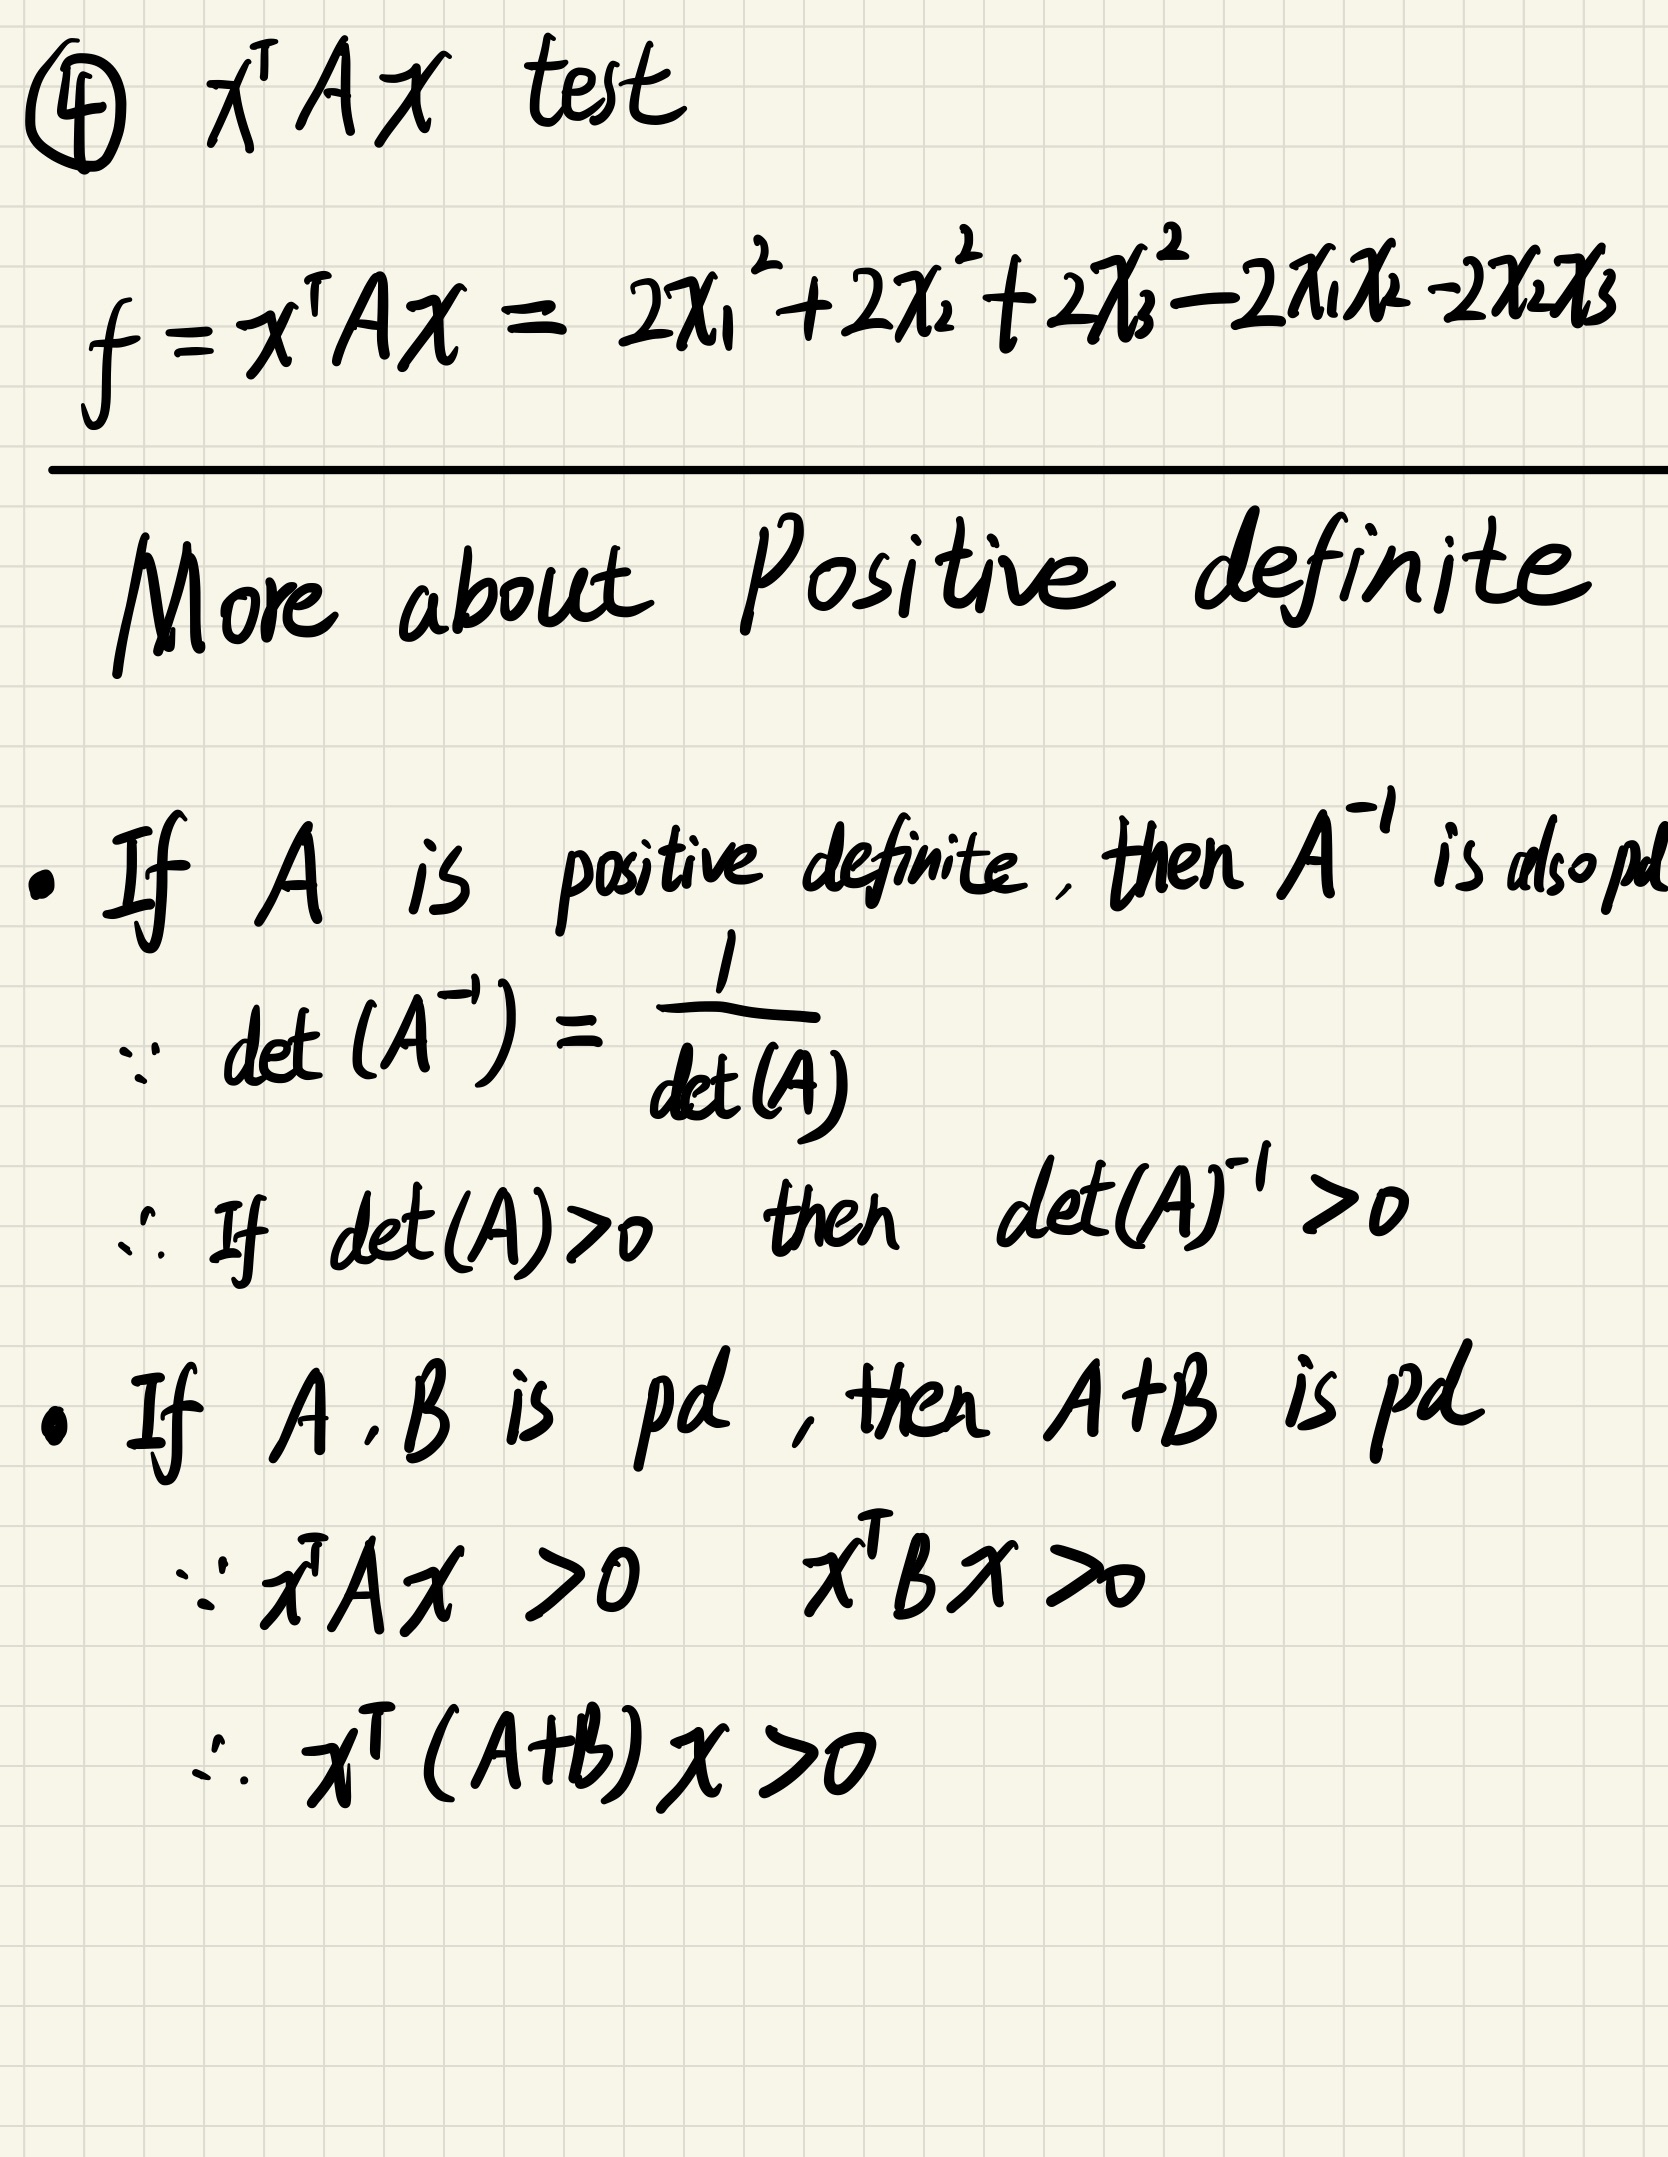 ④ xᵀAx test
f = xᵀAx = 2x₁² + 2x₂² + 2x₃² − 2x₁x₂ − 2x₂x₃
More about Positive definite
• If A is positive definite, then A⁻¹ is also pd
∵ det(A⁻¹) = 1/det(A)
∴ If det(A)>0 then det(A)⁻¹ >0
• If A, B is pd, then A+B is pd
∵ xᵀAx >0 xᵀBx >0
∴ xᵀ(A+B)x >0